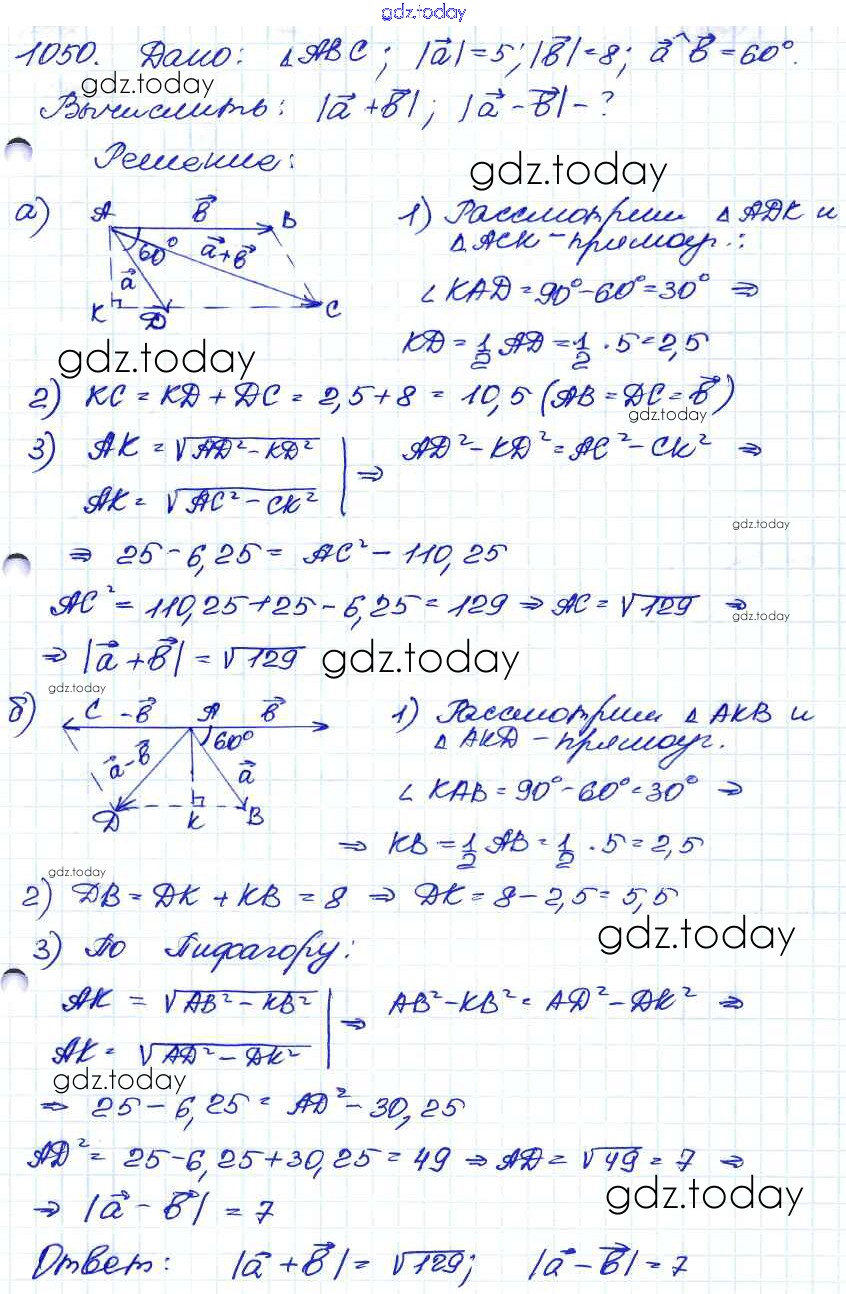 gdz.today
1050. Дано: △ABC; |a⃗|=5; |b⃗|=8; a⃗^b⃗=60°.
gdz.today
Вычислить: |a⃗+b⃗|; |a⃗-b⃗|-?
Решение:
gdz.today
а) A b⃗ B
60° a⃗+b⃗
a⃗
K D C
1) Рассмотрим △ADK и
△ACK-прямоуг.:
∠KAD=90°-60°=30° ⇒
KD=1/2 AD=1/2·5=2,5
gdz.today
2) KC=KD+DC=2,5+8=10,5 (AB=DC=b⃗)
gdz.today
3) AK=√(AD²-KD²) | ⇒ AD²-KD²=AC²-CK² ⇒
AK=√(AC²-CK²)
gdz.today
⇒ 25-6,25=AC²-110,25
AC²=110,25+25-6,25=129 ⇒ AC=√129 ⇒
gdz.today
⇒ |a⃗+b⃗|=√129
gdz.today
gdz.today
б) C -b⃗ A b⃗
60°
a⃗-b⃗ a⃗
D K B
1) Рассмотрим △AKB и
△AKD-прямоуг.
∠KAB=90°-60°=30° ⇒
⇒ KB=1/2 AB=1/2·5=2,5
gdz.today
2) DB=DK+KB=8 ⇒ DK=8-2,5=5,5
gdz.today
3) По Пифагору:
AK=√(AB²-KB²) | ⇒ AB²-KB²=AD²-DK² ⇒
AK=√(AD²-DK²)
gdz.today
⇒ 25-6,25=AD²-30,25
AD²=25-6,25+30,25=49 ⇒ AD=√49=7 ⇒
gdz.today
⇒ |a⃗-b⃗|=7
Ответ: |a⃗+b⃗|=√129; |a⃗-b⃗|=7